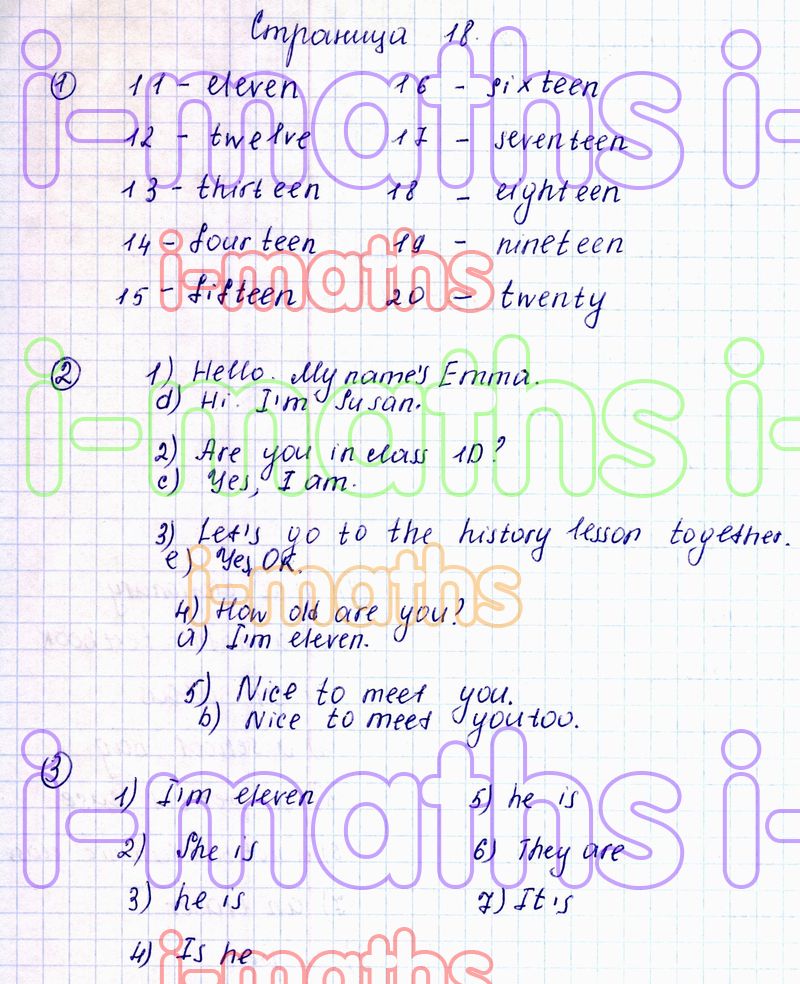 Страница 18.
1 11 - eleven 16 - sixteen
12 - twelve 17 - seventeen
13 - thirteen 18 - eighteen
14 - fourteen 19 - nineteen
15 - fifteen 20 - twenty
2 1) Hello. My name's Emma.
d) Hi. I'm Susan.
2) Are you in class 1D?
c) Yes, I am.
3) Let's go to the history lesson together.
e) Yes, OK.
4) How old are you?
a) I'm eleven.
5) Nice to meet you.
b) Nice to meet you too.
3
1) I'm eleven 5) he is
2) She is 6) They are
3) he is 7) It is
4) Is he
i-maths i-
i-maths
i-maths i-
i-maths
i-maths i-
i-maths